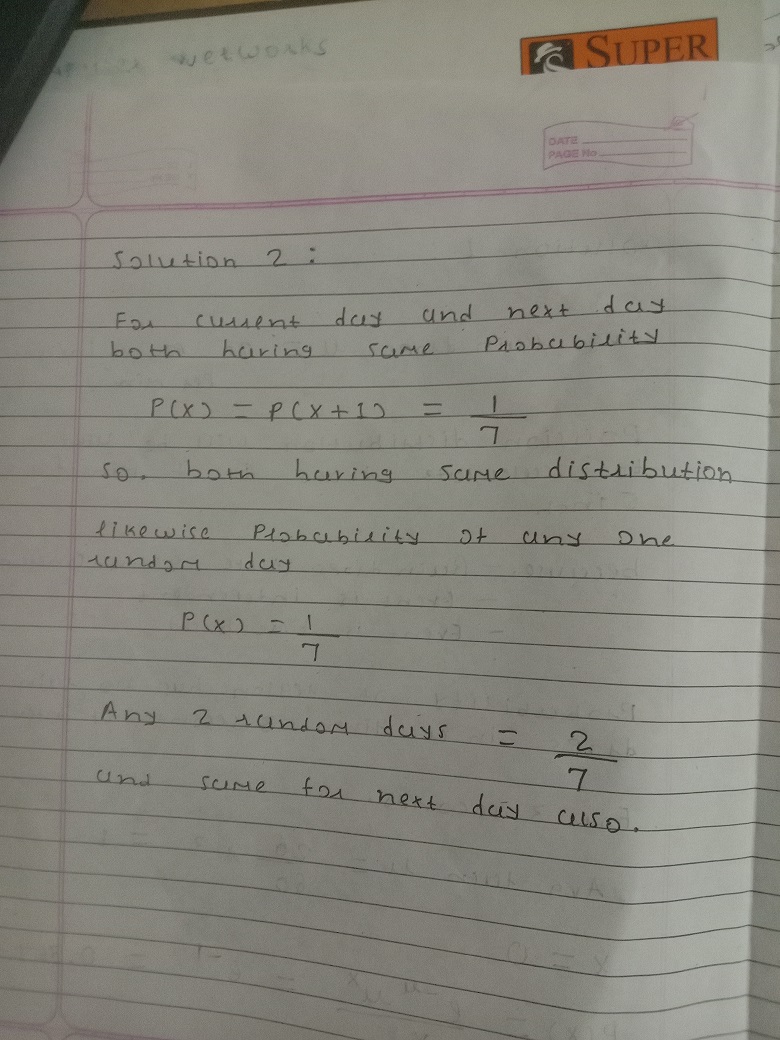 Networks
SUPER
DATE
PAGE No
Solution 2 :
For current day and next day
both having same Probability
P(X) = P(X+1) = 1/7
so. both having same distribution
likewise Probability of any one
random day
P(X) = 1/7
Any 2 random days = 2/7
and same for next day also.